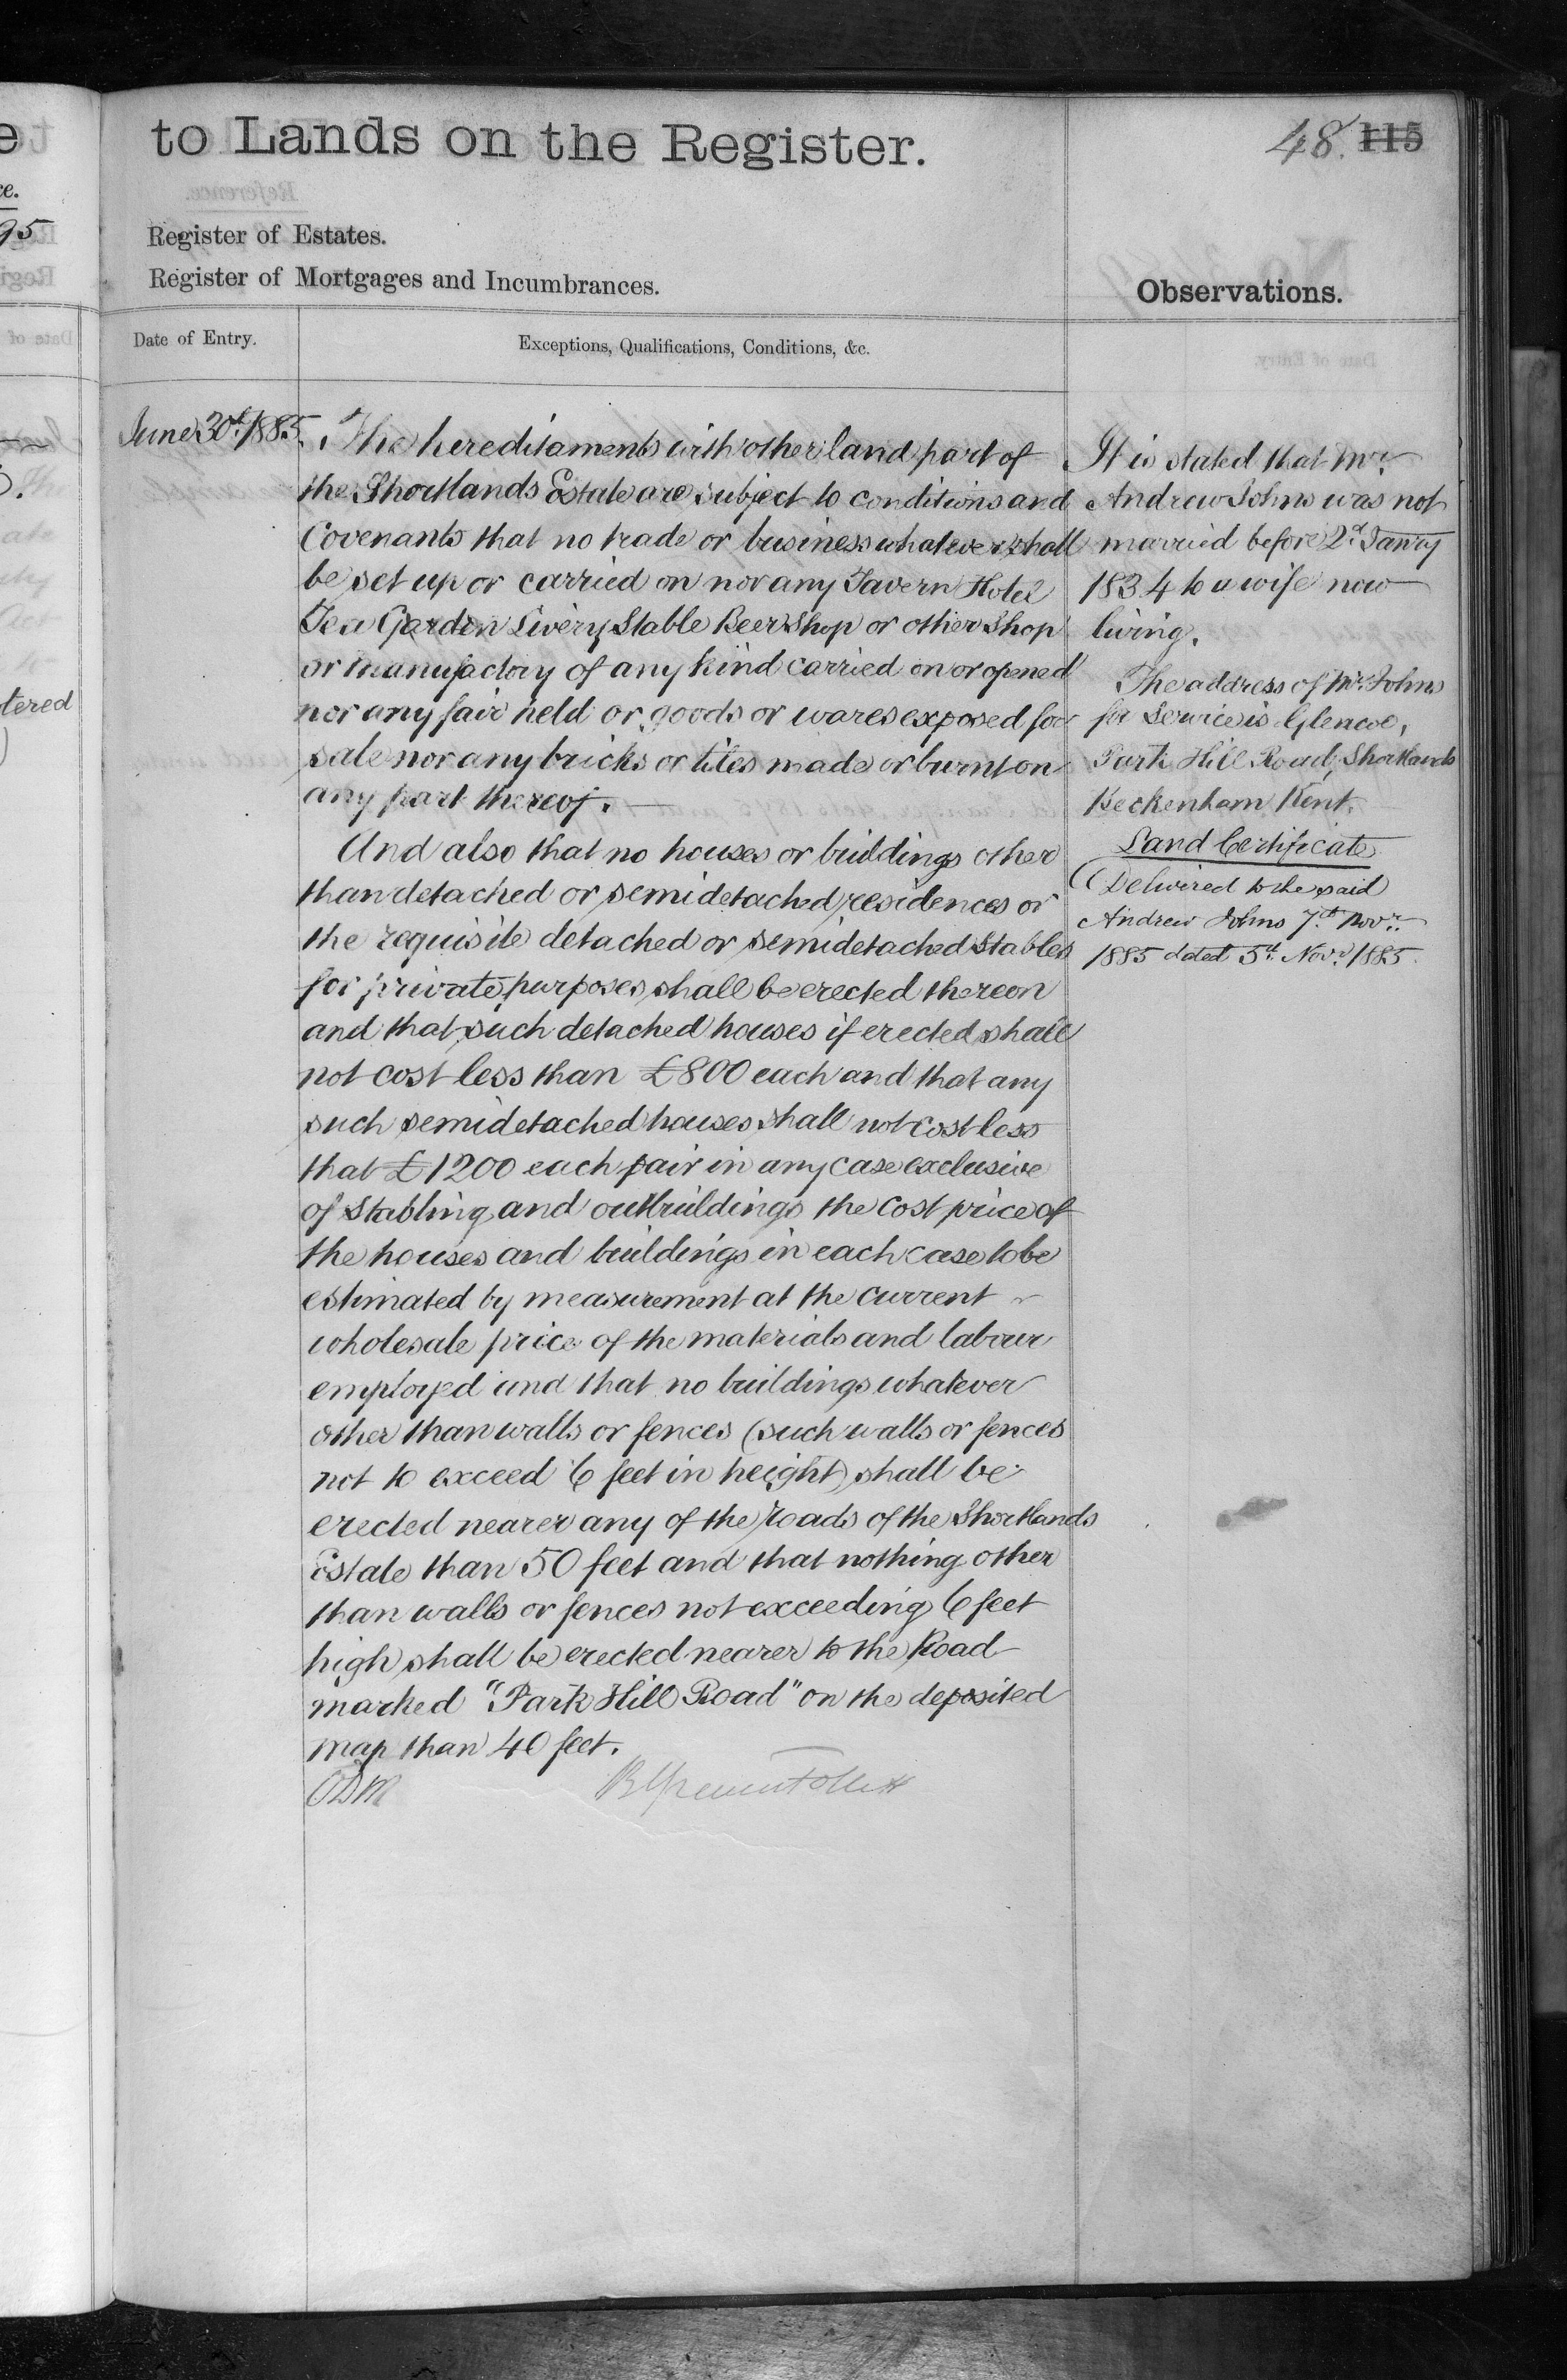 to Lands on the Register.
48. 115
Register of Estates.
Register of Mortgages and Incumbrances.
Observations.
Date of Entry.
Exceptions, Qualifications, Conditions, &c.
June 30th 1885.
The hereditaments with other land part of
the Shortlands Estate are subject to conditions and
Covenants that no trade or business whatever shall
be set up or carried on nor any Tavern Hotel
Tea Garden Livery Stable Beer Shop or other Shop
or manufactory of any kind carried on or opened
nor any fair held or goods or wares exposed for
sale nor any bricks or tiles made or burnt on
any part thereof.
And also that no houses or buildings other
than detached or semidetached residences or
the requisite detached or semidetached Stables
for private purposes shall be erected thereon
and that such detached houses if erected shall
not cost less than £800 each and that any
such semidetached houses shall not cost less
that £1200 each pair in any case exclusive
of Stabling and outbuildings the cost price of
the houses and buildings in each case to be
estimated by measurement at the current
wholesale price of the materials and labour
employed and that no buildings whatever
other than walls or fences (such walls or fences
not to exceed 6 feet in height) shall be
erected nearer any of the roads of the Shortlands
Estate than 50 feet and that nothing other
than walls or fences not exceeding 6 feet
high shall be erected nearer to the Road
marked "Park Hill Road" on the deposited
map than 40 feet.
It is stated that Mr.
Andrew Johns was not
married before 2d Janry
1834 to a wife now
living.
The address of Mr. Johns
for Service is Glencoe,
Park Hill Road, Shortlands
Beckenham Kent.
Land Certificate
Delivered to the said
Andrew Johns 7th Novr.
1885 dated 5th Novr. 1885.
e
ce.
95
tered
)